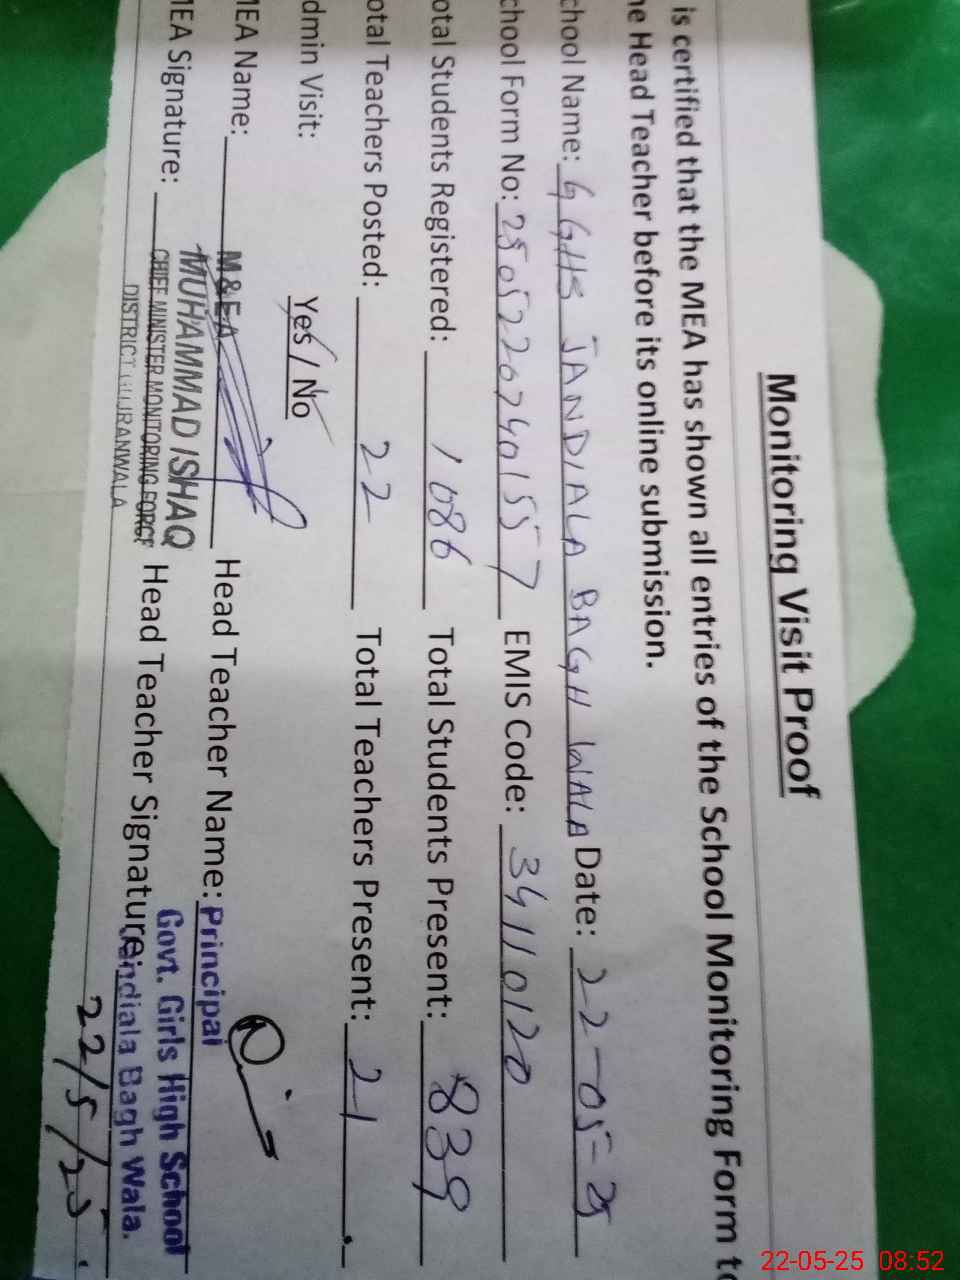 Monitoring Visit Proof
is certified that the MEA has shown all entries of the School Monitoring Form to
he Head Teacher before its online submission.
chool Name: GGHS JANDIALA BAGH WALA Date: 22-05-25
chool Form No: 2505220740157 EMIS Code: 34110120
otal Students Registered: 1086 Total Students Present: 839
otal Teachers Posted: 22 Total Teachers Present: 21
dmin Visit: Yes / No
MEA Name: M&EA Head Teacher Name: Principal
MEA Signature: MUHAMMAD ISHAQ Head Teacher Signature: Govt. Girls High School
CHIEF MINISTER MONITORING FORCE Jandiala Bagh Wala.
DISTRICT GUJRANWALA
22/5/25
22-05-25 08:52